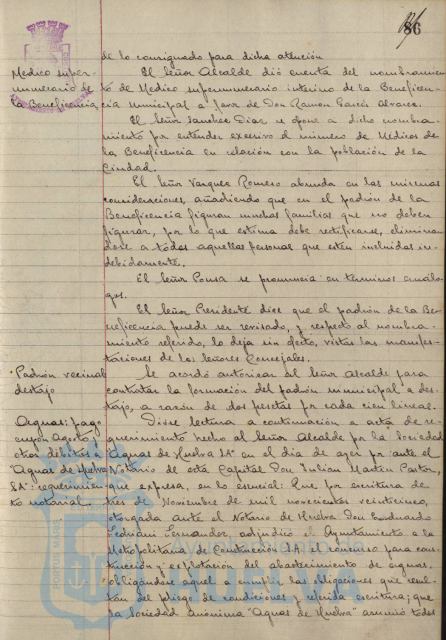 86
de lo consignado para dicha atención
Medico super-
numerario de
la Beneficencia
El Señor Alcalde dió cuenta del nombramien-
to de Medico supernumerario interino de la Beneficen-
cia Municipal a favor de Don Ramon Garcia Alvarez.
El Señor Sanchez Diaz se opone a dicho nombra-
miento por entender excesivo el número de Médicos de
la Beneficencia en relación con la población de la
Ciudad.
El Señor Vazquez Romero abunda en las mismas
consideraciones, añadiendo que en el padrón de la
Beneficencia figuran muchas familias que no deben
figurar, por lo que estima debe rectificarse, eliminan-
dose a todas aquellas personas que esten incluidas in-
debidamente.
El Señor Ponsa se pronuncia en terminos análo-
gos.
El Señor Presidente dice que el padrón de la Be-
neficencia puede ser revisado, y respecto al nombra-
miento referido, lo deja sin efecto, vistas las manifes-
taciones de los Señores Concejales.
Padrón vecinal
destajo
Se acordó autorizar al Señor Alcalde para
contratar la formación del padrón municipal a des-
tajo, a razón de dos pesetas por cada cien lineas.
Aguas: pago
Agosto y
otros debitos a
"Aguas de Huelva
S.A": requerimien-
to notarial.
Diose lectura a continuación a acta de re-
querimiento hecho al Señor Alcalde por la Sociedad
"Aguas de Huelva S.A" en el dia de ayer por ante el
Notario de esta Capital Don Julian Martin Pastor,
que expresa, en lo esencial: Que por escritura de
tres de Noviembre de mil novecientos veinticinco,
otorgada ante el Notario de Huelva Don Eduardo
Fernandez, adjudicó el Ayuntamiento a la
Metropolitana de Construcción S.A. el concurso para cons-
trucción y explotación del abastecimiento de aguas,
obligándose aquel a cumplir las obligaciones que resul-
tan del pliego de condiciones y referida escritura; que
la Sociedad Anónima "Aguas de Huelva" asumió todos